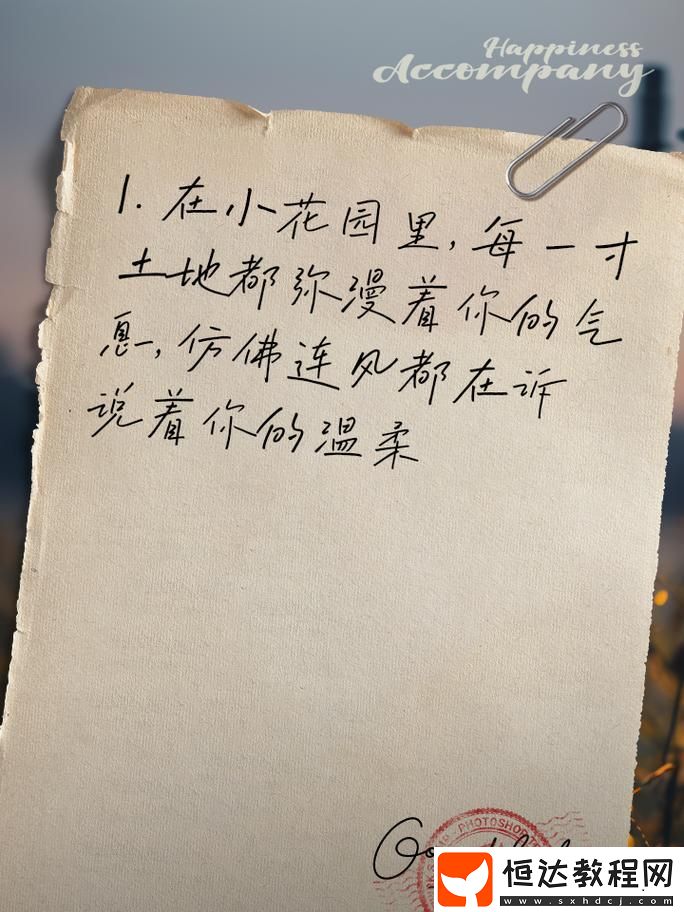 Happiness
Accompany
1. 在小花园里，每一寸
土地都弥漫着你的气
息，仿佛连风都在诉
说着你的温柔
PHOTOSHOP
恒达教程网
www.sxhdcj.com